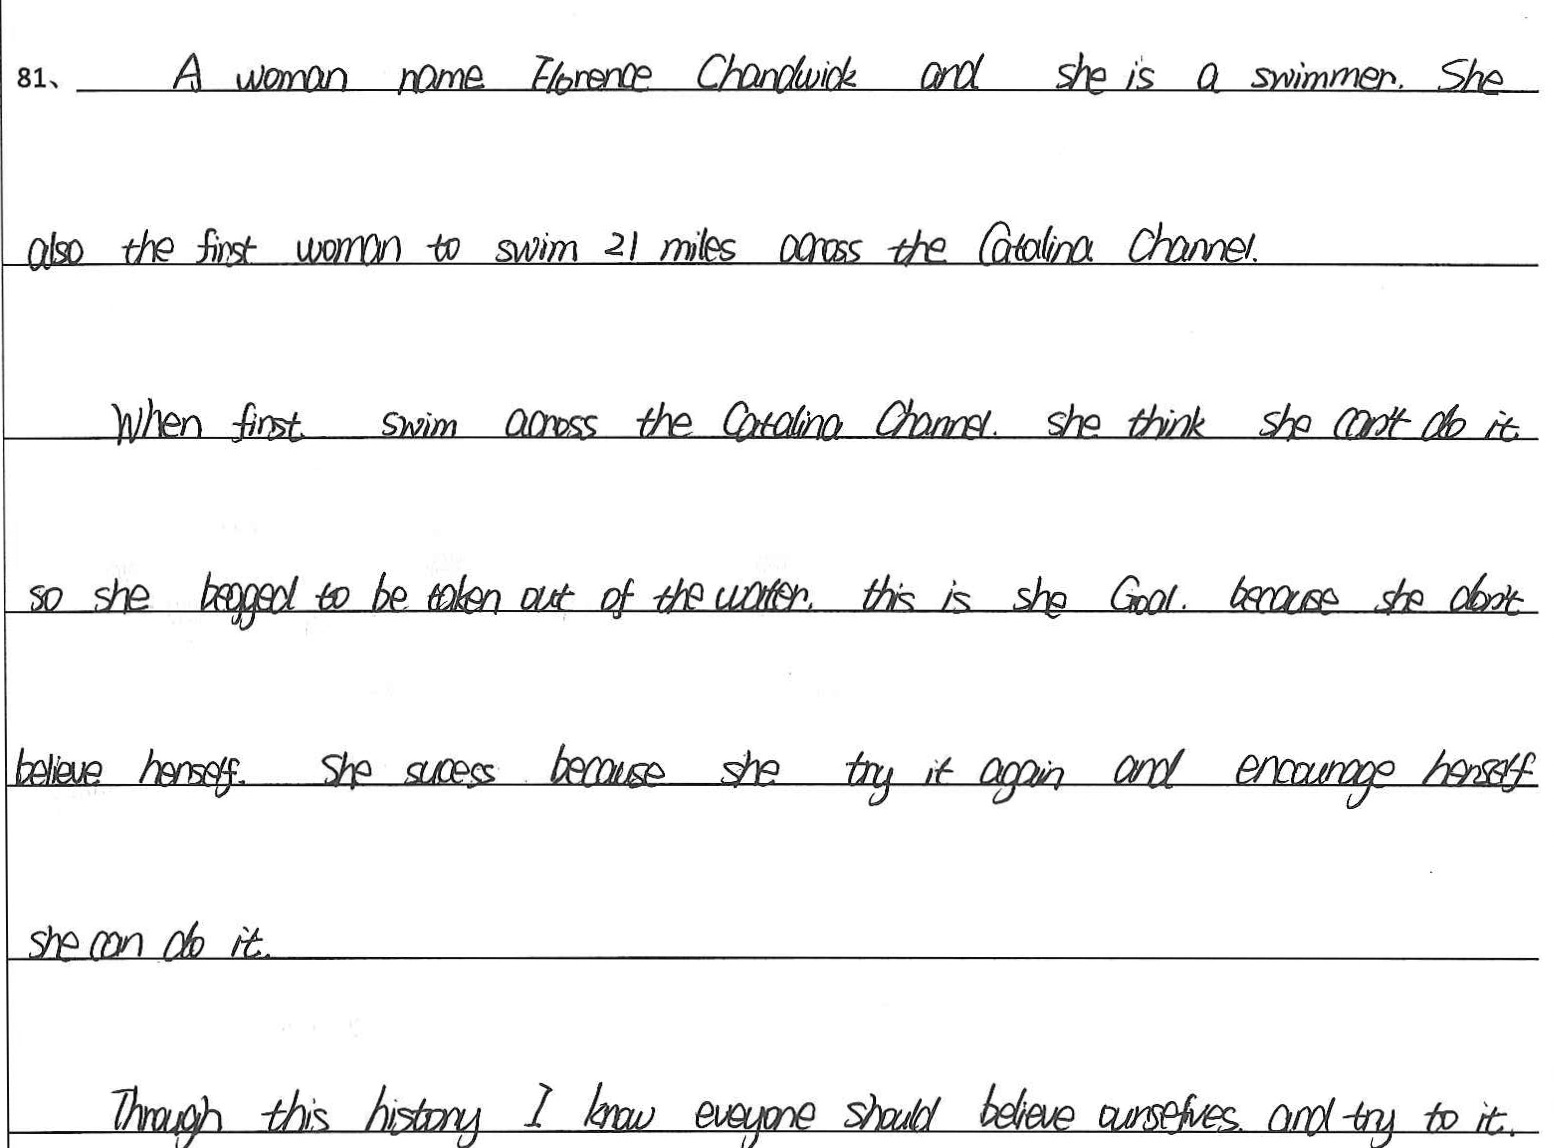 81、 A woman name Florence Chandwick and she is a swimmer. She
also the first woman to swim 21 miles across the Catalina Channel.
When first swim across the Catalina Channel. she think she can't do it
so she begged to be taken out of the water. this is she Goal. because she don't
believe herself. She sucess because she try it again and encourage herself
she can do it.
Through this history I know eveyone should believe ourselves. and try to it.